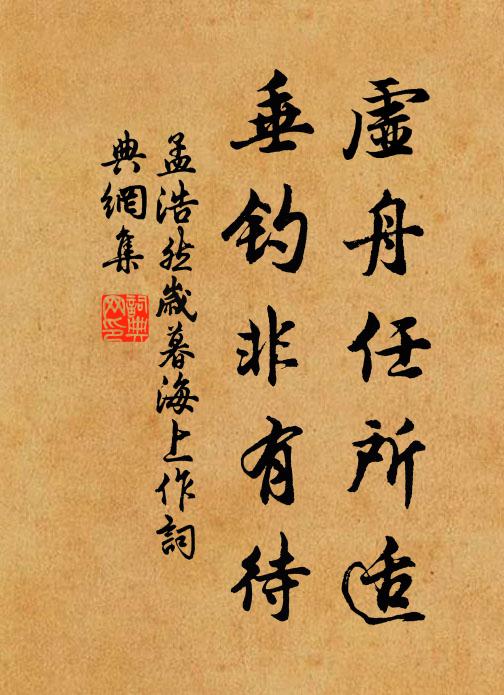 虛舟任所适
垂钓非有待
孟浩然歲暮海上作詞
典網集
詞典
网印